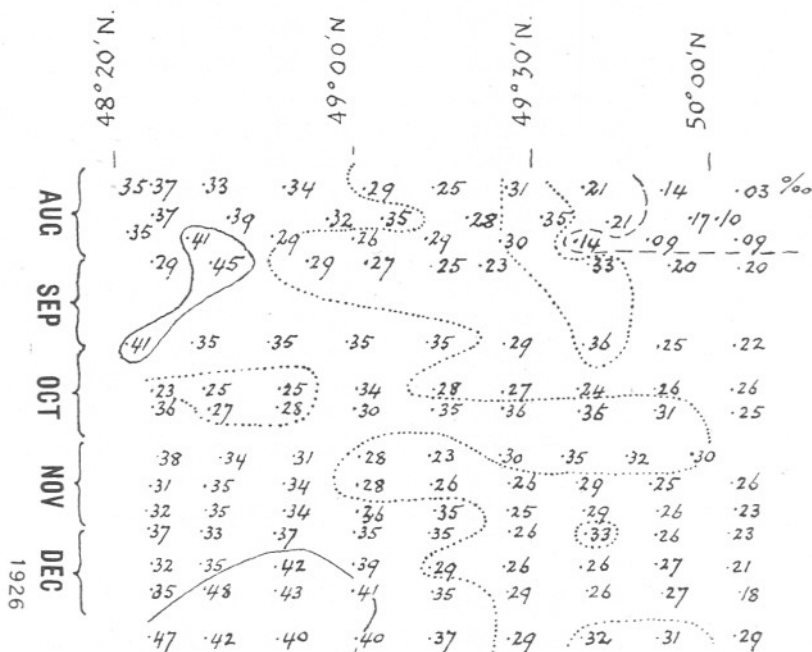 48°20'N. 49°00'N 49°30'N. 50°00'N
AUG
·35 ·37 ·33 ·34 ·29 ·25 ·31 ·21 ·14 ·03 ‰
·37 ·39 ·32 ·35 ·28 ·35 ·21 ·17 ·10
·35 ·41 ·29 ·26 ·29 ·30 ·14 ·09 ·09
·29 ·45 ·29 ·27 ·25 ·23 ·33 ·20 ·20
SEP
·41 ·35 ·35 ·35 ·35 ·29 ·36 ·25 ·22
OCT
·23 ·25 ·25 ·34 ·28 ·27 ·24 ·26 ·26
·36 ·27 ·28 ·30 ·35 ·36 ·36 ·31 ·25
NOV
·38 ·34 ·31 ·28 ·23 ·30 ·35 ·32 ·30
·31 ·35 ·34 ·28 ·26 ·26 ·29 ·25 ·26
·32 ·35 ·34 ·36 ·35 ·25 ·29 ·26 ·23
·37 ·33 ·37 ·35 ·35 ·26 ·33 ·26 ·23
DEC
·32 ·35 ·42 ·39 ·29 ·26 ·26 ·27 ·21
·35 ·48 ·43 ·41 ·35 ·29 ·26 ·27 ·18
1926
·47 ·42 ·40 ·40 ·37 ·29 ·32 ·31 ·29